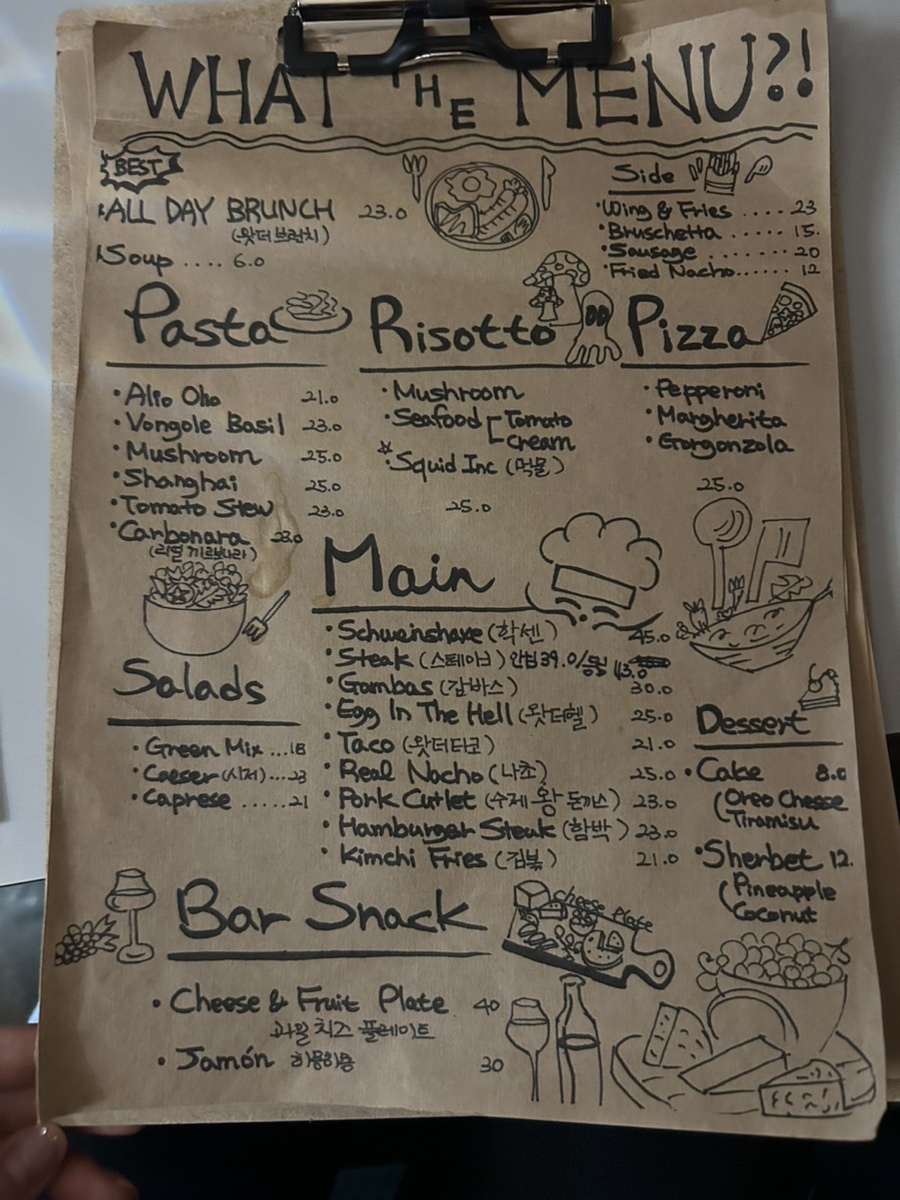 WHAT THE MENU?!
BEST
ALL DAY BRUNCH 23.0
(왓더브런치)
Soup .... 6.0
Side
·Wing & Fries .... 23
·Bruschetta ..... 15.
·Sausage ....... 20
·Fried Nacho...... 12
Pasta
·Alio Olio 21.0
·Vongole Basil 23.0
·Mushroom 25.0
·Shanghai 25.0
·Tomato Stew 23.0
·Carbonara 23.0
(리얼 까르보나라)
Risotto
·Mushroom
·Seafood Tomato
Cream
·Squid Inc (먹물)
25.0
Pizza
·Pepperoni
·Margherita
·Gorgonzola
25.0
Main
·Schweinshaxe (학센) 45.0
·Steak (스테이크) 안심39.0/등심 43.0
·Gambas (감바스) 30.0
·Egg In The Hell (왓더헬) 25.0
·Taco (왓더타코) 21.0
·Real Nacho (나쵸) 25.0
·Pork Cutlet (수제 왕 돈까스) 23.0
·Hamburger Steak (함박) 23.0
·Kimchi Fries (김볶) 21.0
Salads
·Green Mix ...18
·Caeser (시저)...23
·Caprese .....21
Dessert
·Cake 8.0
(Oreo Chesse
Tiramisu
·Sherbet 12.
(Pineapple
Coconut
Bar Snack
·Cheese & Fruit Plate 40
과일 치즈 플레이트
·Jamón 하몽하몽 30
Cheese Plate